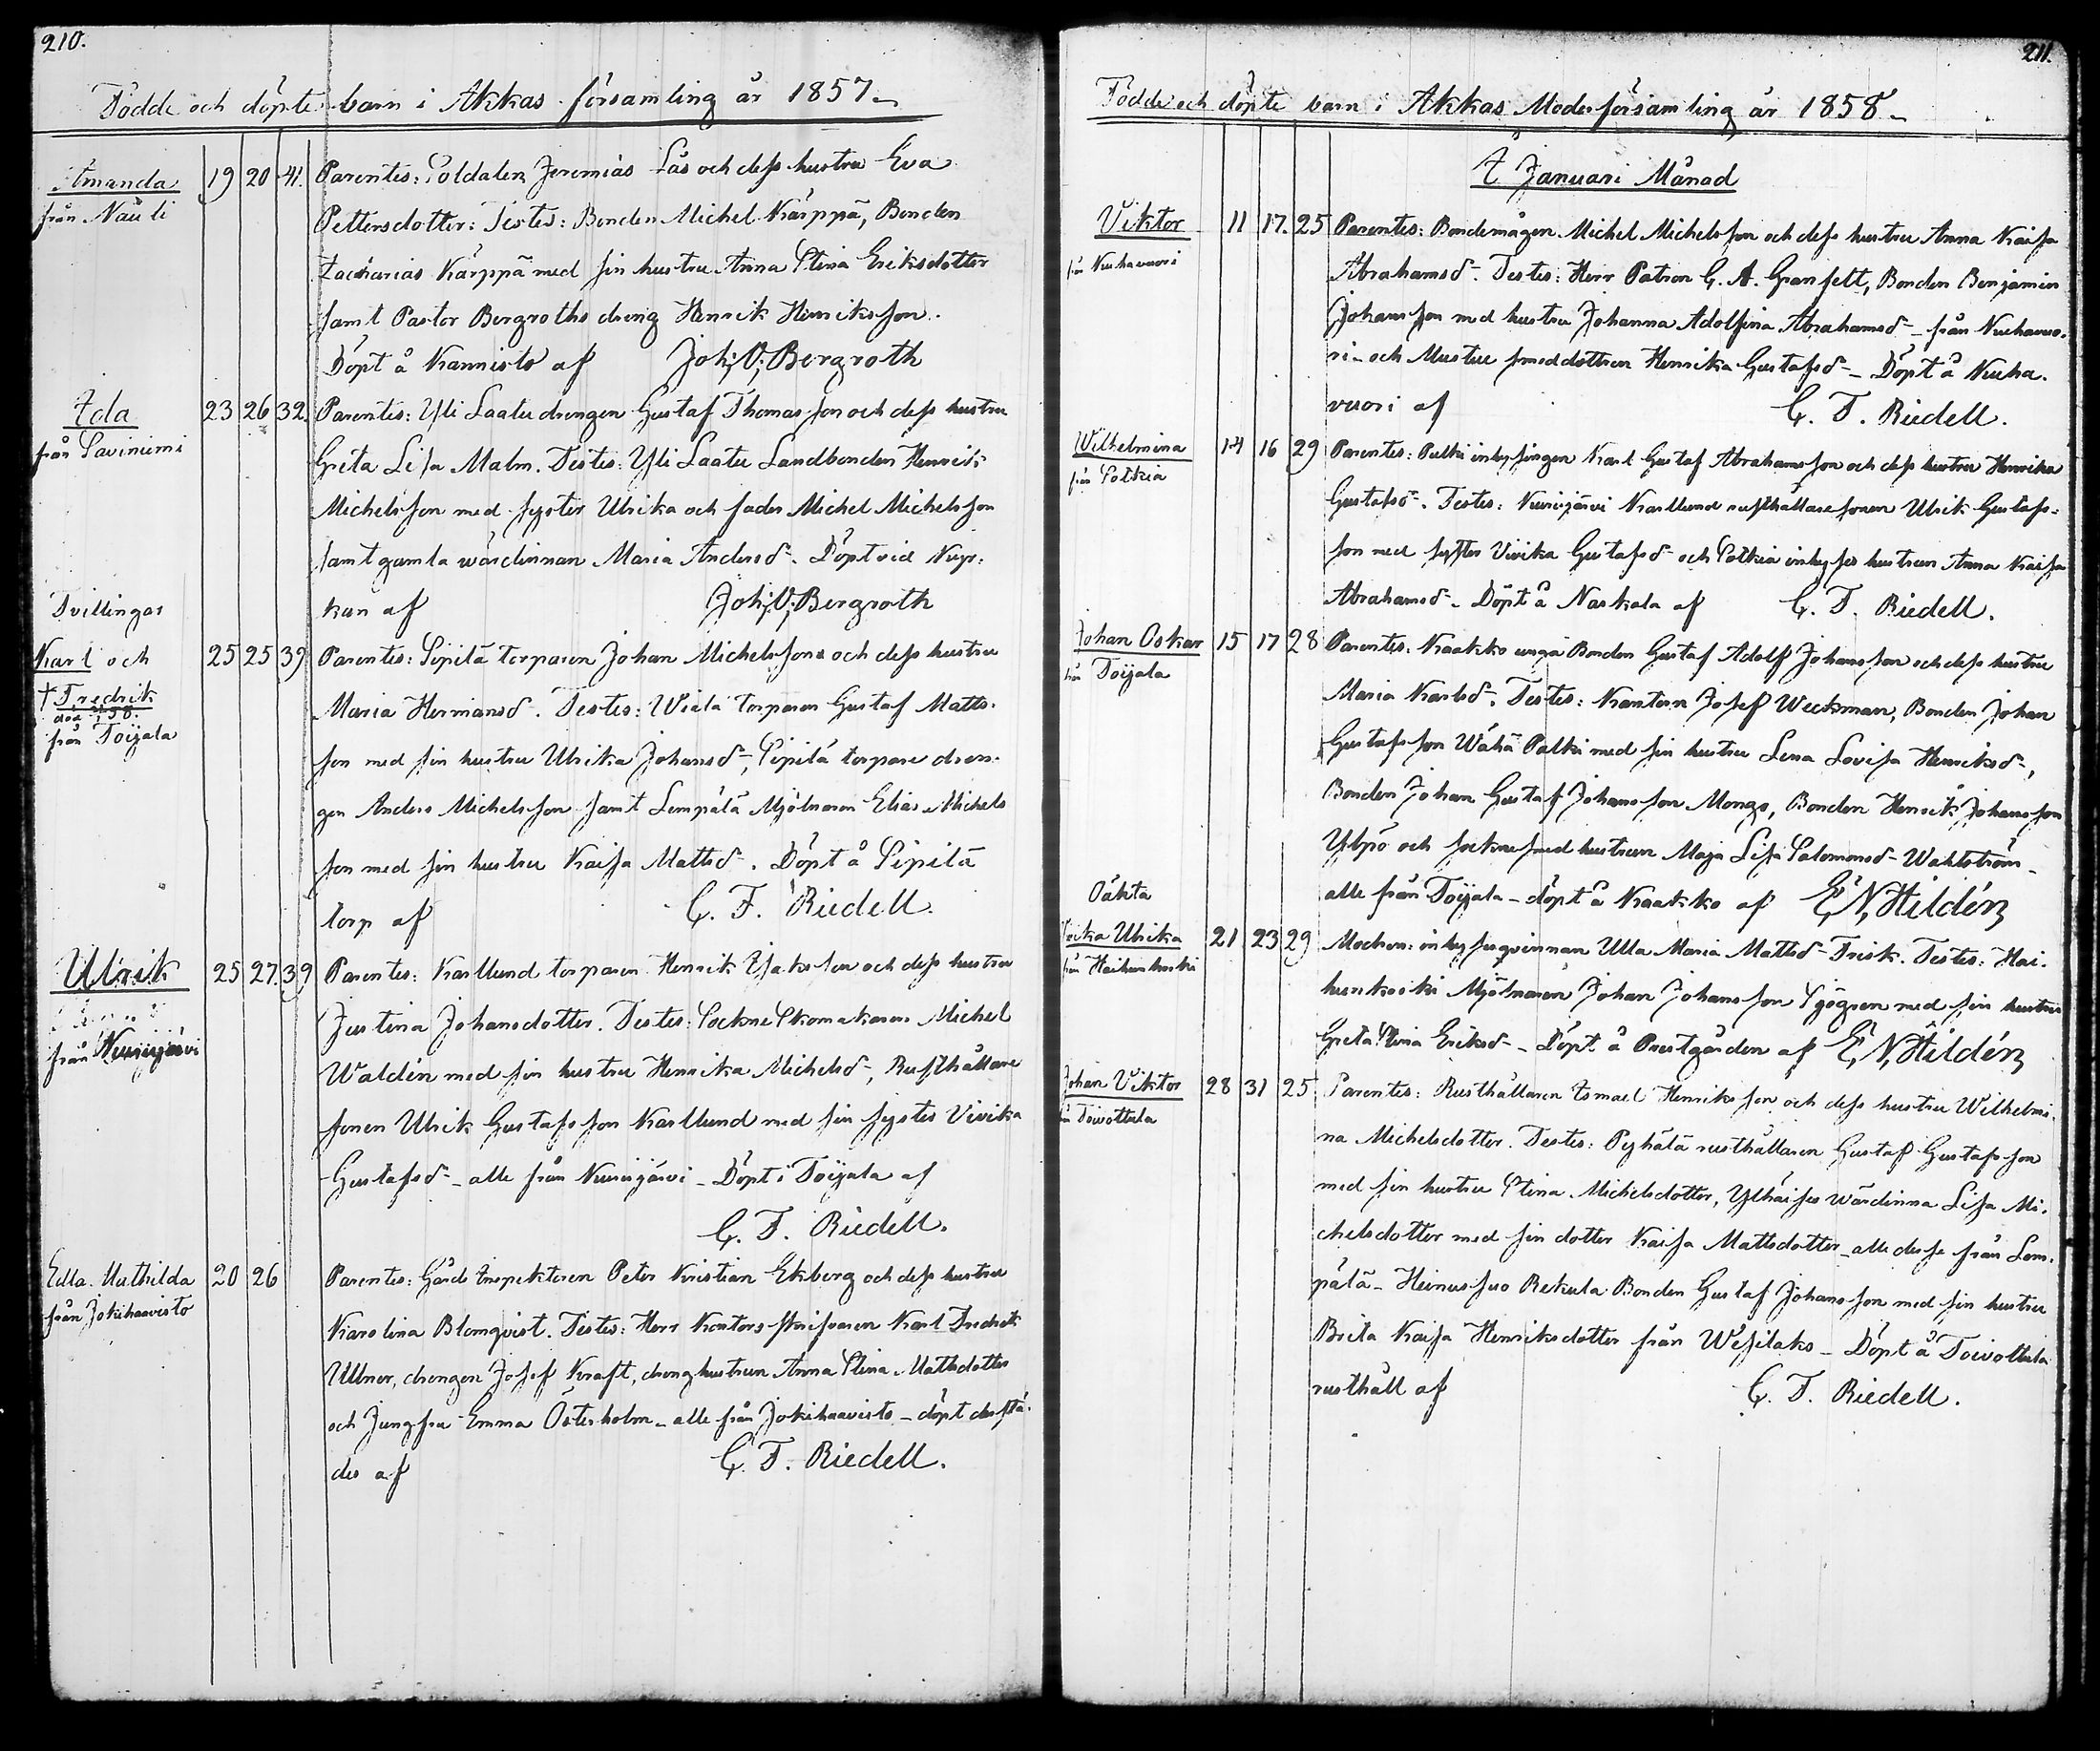 210.
Födde och döpte barn i Akkas församling år 1857.
Amanda 19 20 41. Parentes: Soldaten Jeremias Lås och dess hustru Eva
från Nauli Pettersdotter: Testes: Bonden Michel Kärppä, Bonden
Zacharias Kärppä med sin hustru Anna Stina Eriksdotter
samt Pastor Bergroths dreng Henrik Henriksson.
Döpt å Kannisto af Joh; O; Bergroth
Ida 23 26 32. Parentes: Yli Laatu drengen Gustaf Thomasson och dess hustru
från Saviniemi Greta Lisa Malm. Testes: Yli Laatu Landbonden Henrik
Michelsson med syster Ulrika och fader Michel Michelsson
samt gamla wärdinnan Maria Andersd-. Döpt vid Kyr-
kan af Joh; O; Bergroth
Tvillingar
Karl och 25 25 39 Parentes: Sipilä torparen Johan Michelsson och dess hustru
† Fredrik Maria Hermansd-. Testes: Wiala torparen Gustaf Matts-
död 58.
från Toijala son med sin hustru Ulrika Johansd-, Sipilä torpare dren-
gen Anders Michelsson samt Lempälä Mjölnaren Elias Michels
son med sin hustru Kaisa Mattsd-. Döpt å Sipilä
torp af C. F. Riedell.
Ulrik 25 27. 39 Parentes: Karllund torparen Henrik Isaksson och dess hustru
Justina Johansdotter. Testes: Sockne Skomakaren Michel
från Kurisjärvi Waldén med sin hustru Henrika Michelsd-, Rusthållare
sonen Ulrik Gustafsson Karllund med sin syster Vivika
Gustafsd- alle från Kurisjärvi - Döpt i Toijala af
C. F. Riedell.
Edla Mathilda 20 26 Parentes: Gårds Inspektoren Peter Kristian Ekberg och dess hustru
från Jokihaavisto Karolina Blomqvist. Testes: Herr Kontorsskrifvaren Karl Fredrik
Ullner, drengen Josef Kraft, dreng hustrun Anna Stina Mattsdotter
och Jungfru Emma Österholm - alle från Jokihaavisto - döpt derstä-
des af C. F. Riedell.
211.
Födde och döpte barn i Akkas Moderförsamling år 1858.
I Januari Månad
Viktor 11 17. 25 Parentes: Bondemågen Michel Michelsson och dess hustru Anna Kaisa
från Nuhavuori Abrahamsd-. Testes: Herr Patron G. A. Granfelt, Bonden Benjamin
Johansson med hustru Johanna Adolfina Abrahamsd- från Nuhavuo-
ri - och Mustue smeddottren Henrika Gustafsd- - Döpt å Nuha-
vuori af C. F. Riedell.
Wilhelmina 14 16 29 Parentes: Pulki inhysingen Karl Gustaf Abrahamsson och dess hustru Henrika
från Sotkia Gustafsd-. Testes: Kurisjärvi Karllund rusthållaresonen Ulrik Gustafs-
son med syster Vivika Gustafsd- och Sotkia inhyses hustrun Anna Kaisa
Abrahamsd-. Döpt å Naskala af C. F. Riedell.
Johan Oskar 15 17 28 Parentes: Kaakko unga Bonden Gustaf Adolf Johansson och dess hustru
från Toijala Maria Karlsd-. Testes: Kantorn Josef Weckman, Bonden Johan
Gustafsson Wähä Palki med sin hustru Lena Lovisa Henriksd-,
Bonden Johan Gustaf Johansson Monzo, Bonden Henrik Johansson
Ylöpö och socknesmed hustrun Maja Lisa Salomonsd- Wahlström -
alle från Toijala - döpt å Kaakko af E, N, Hildén
Oäkta
Ulrika 21 23 29 Modren: inhysesqvinnan Ulla Maria Mattsd- Frisk. Testes: Hai-
från Haihunkoski hunkoski Mjölnaren Johan Johansson Sjögren med sin hustru
Greta Stina Eriksd- - Döpt å Prestgården af E, N, Hildén
Johan Viktor 28 31 25 Parentes: Rusthållaren Ismael Henriksson och dess hustru Wilhelmi-
från Toivottula na Michelsdotter. Testes: Pyhälä rusthållaren Gustaf Gustafsson
med sin hustru Stina Michelsdotter, Ylhäises wärdinna Lisa Mi-
chelsdotter med sin dotter Kaisa Mattsdotter - alle desse från Lem-
pälä - Heinusuo Rekula Bonden Gustaf Johansson med sin hustru
Brita Kaisa Henriksdotter från Wesilaks - Döpt å Toivottula
rusthåll af C. F. Riedell.